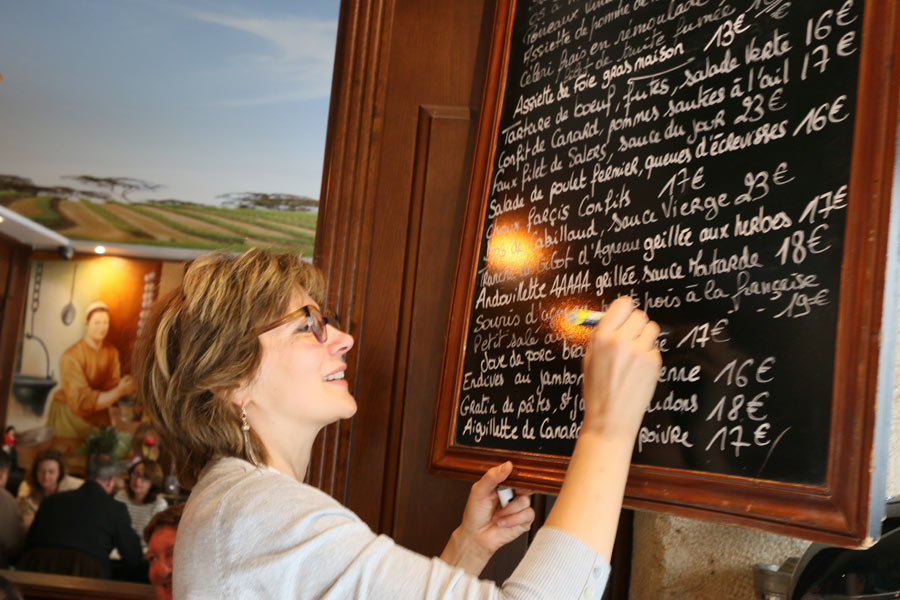 Assiette de pomme de
Céleri frais en rémoulade
filet de truite fumée 1
Assiette de Foie gras maison 13€
Tartare de bœuf, frites, salade Verte 16€
Confit de Canard, pommes sautées à l'ail 17€
Faux Filet de Salers, sauce du jour 23€
Salade de poulet Fermier, queues d'écrevisses 16€
Choux farçis Confits 17€
cabillaud, sauce Vierge 23€
Tranche de Gigot d'Agneau grillée aux herbes 17€
Andouillette AAAAA grillée, sauce Moutarde 18€
Souris d'agneau pois à la française - 19€
Petit salé au 17€
Joue de porc
Endives au jambon 16€
Gratin de pâtes, St 18€
Aiguillette de Canard poivre 17€